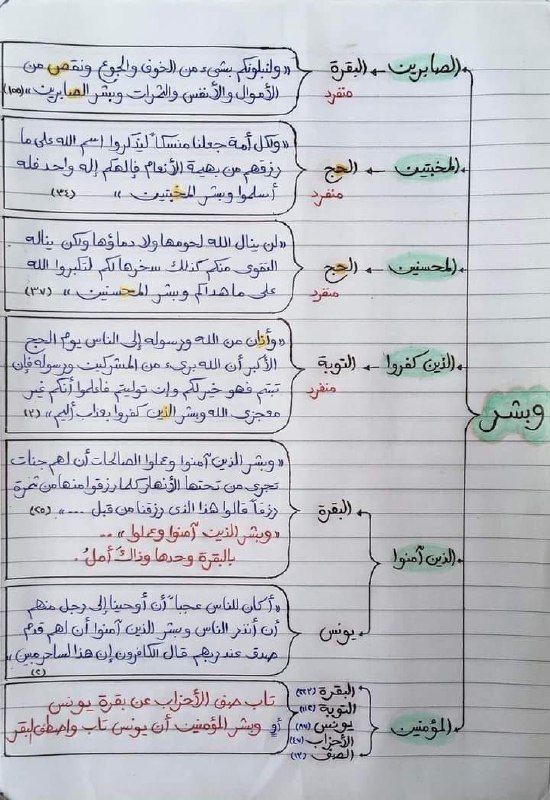 وبشر
الصابرين ← البقرة
منفرد
« ولنبلونكم بشيء من الخوف والجوع ونقص من
الأموال والأنفس والثمرات وبشر الصابرين » (١٥٥)
المخبتين ← الحج
منفرد
« ولكل أمة جعلنا منسكاً ليذكروا اسم الله على ما
رزقهم من بهيمة الأنعام فإلهكم إله واحد فله
أسلموا وبشر المخبتين » (٣٤)
المحسنين ← الحج
منفرد
« لن ينال الله لحومها ولا دماؤها ولكن يناله
التقوى منكم كذلك سخرها لكم لتكبروا الله
على ما هداكم وبشر المحسنين » (٣٧)
الذين كفروا ← التوبة
منفرد
« وأذان من الله ورسوله إلى الناس يوم الحج
الأكبر أن الله بريء من المشركين ورسوله فإن
تبتم فهو خير لكم وإن توليتم فاعلموا أنكم غير
معجزي الله وبشر الذين كفروا بعذاب أليم » (٣)
الذين آمنوا
البقرة
« وبشر الذين آمنوا وعملوا الصالحات أن لهم جنات
تجري من تحتها الأنهار كلما رزقوا منها من ثمرة
رزقاً قالوا هذا الذي رزقنا من قبل .... » (٢٥)
« وبشر الذين آمنوا وعملوا » ..
بالبقرة وحدها وذاك أمل.
يونس
« أكان للناس عجباً أن أوحينا إلى رجل منهم
أن أنذر الناس وبشر الذين آمنوا أن لهم قدم
صدق عند ربهم قال الكافرون إن هذا لساحر مبين »
(٢)
المؤمنين
البقرة (٢٢٣)
التوبة (١١٢)
يونس (٨٧)
الأحزاب (٤٧)
الصف (١٣)
تاب صف الأحزاب عن بقرة يونس
أو وبشر المؤمنين أن يونس تاب واصطفى البقر